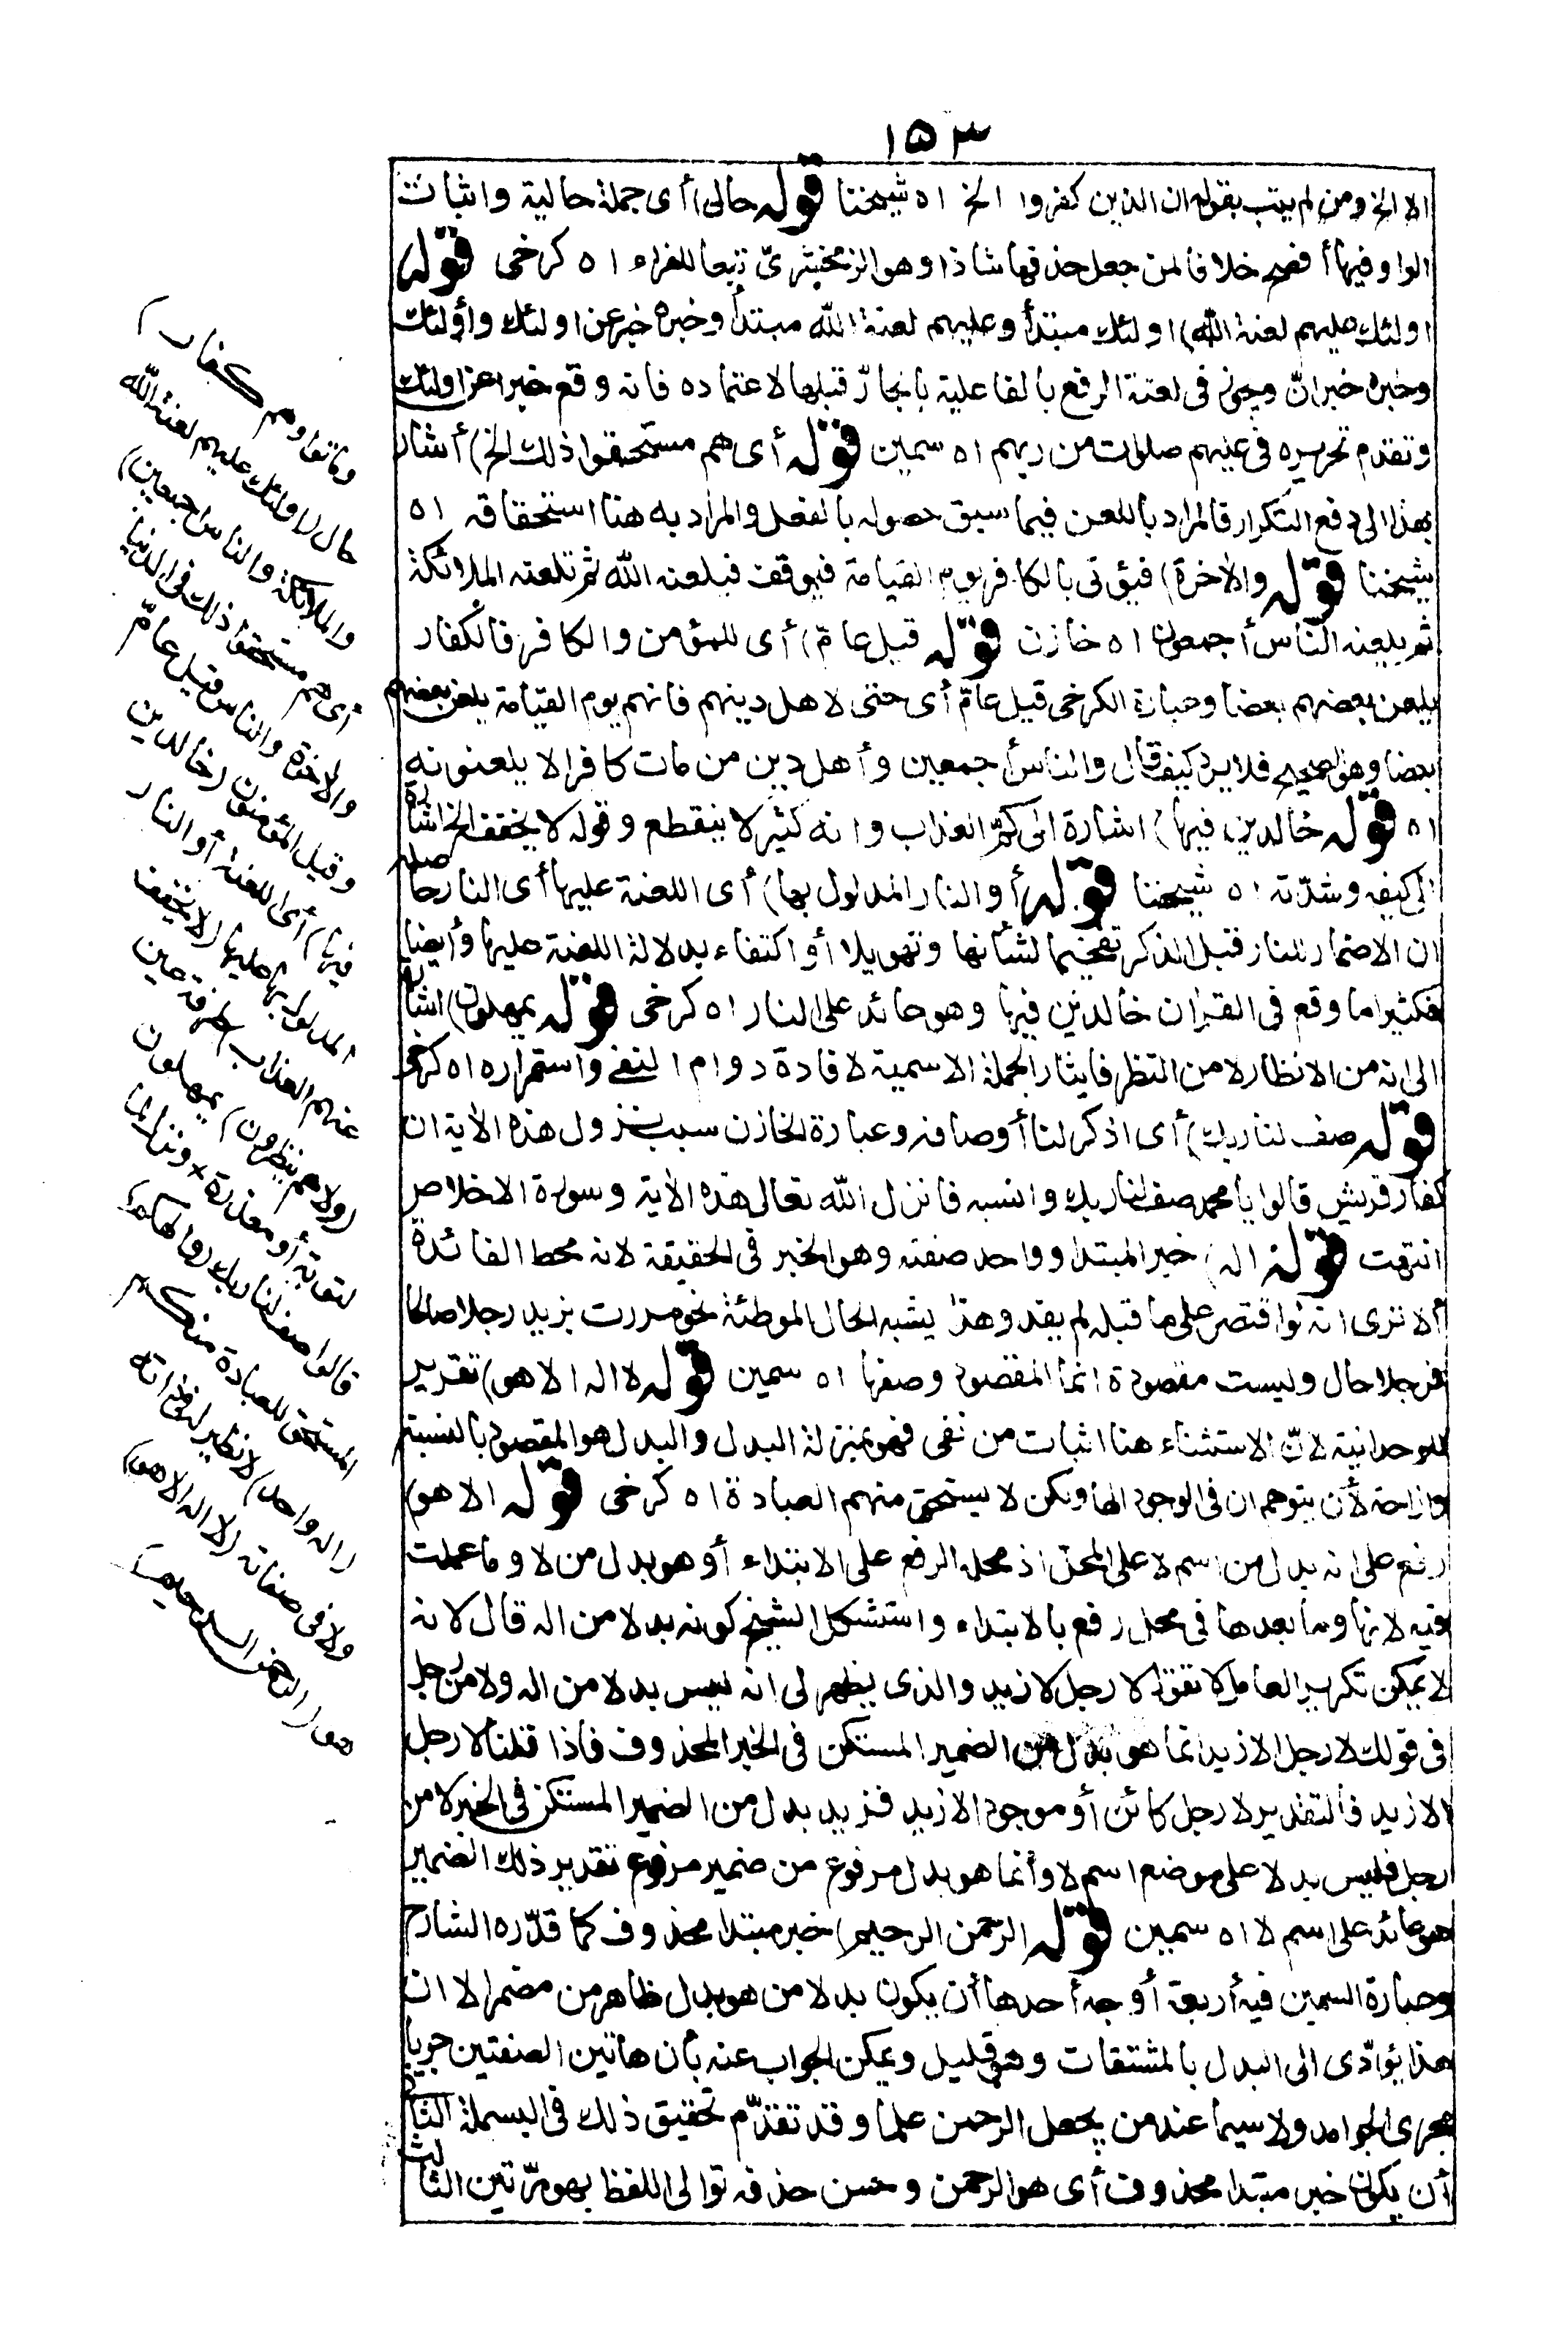 ١٥٣
الا الخ ومن لم يتب بقوله ان الذين كفروا الخ اه شيخنا قوله حالى) أى جملة حالية واثبات
الواو فيها أفصح خلافا لمن جعل حذفها شاذا وهو الزمخشرىّ تبعا للفراء اه كرخى قوله
اولئك عليهم لعنة الله) اولئك مبتدأ وعليهم لعنة الله مبتدأ وخبره خبر عن اولئك وأولئك
وخبره خبر انّ ويجوز فى لعنة الرفع بالفاعلية بالجارّ قبلها لاعتماده فانه وقع خبرا عن اولئك
وتقدم تحريره فى عليهم صلوات من ربهم اه سمين قوله أى هم مستحقوا ذلك الخ) أشار
بهذا الى دفع التكرار فالمراد باللعن فيما سبق حصوله بالفعل والمراد به هنا استحقاقه اه
شيخنا قوله والاخرة) فيؤتى بالكافر يوم القيامة فيوقف فيلعنه الله ثم تلعنه الملائكة
ثم يلعنه الناس أجمعون اه خازن قوله قيل عامّ) أى للمؤمن والكافر فالكفار
يلعن بعضهم بعضا وعبارة الكرخى قيل عامّ أى حتى لاهل دينهم فانهم يوم القيامة يلعن بعضهم
بعضا وهو الصحيح فلا يرد كيف قال والناس أجمعين وأهل دين من مات كافرا لا يلعنونه
اه قوله خالدين فيها) اشارة الى كمّ العذاب وانه كثير لا ينقطع وقوله لا يخفف الخ اشارة
الى كيفه وشدّته اه شيخنا قوله أو النار المدلول بها) أى اللعنة عليها أى النار حاصله
ان الاضمار للنار قبل الذكر تفخيما لشأنها وتهويلا أو اكتفاء بدلالة اللعنة عليها وأيضا
فكثيرا ما وقع فى القران خالدين فيها وهو عائد على النار اه كرخى قوله يمهلون) اشارة
الى انه من الانظار لا من النظر فايثار الجملة الاسمية لافادة دوام النفى واستمراره اه كرخى
قوله صف لنا ربك) أى اذكر لنا أوصافه وعبارة الخازن سبب نزول هذه الأية ان
كفار قريش قالوا يا محمد صف لنا ربك وانسبه فانزل الله تعالى هذه الأية وسورة الاخلاص
انتهت قوله اله) خبر المبتدا وواحد صفته وهو الخبر فى الحقيقة لانه محط الفائدة
ألا ترى انه لو اقتصر على ما قبله لم يفد وهذا يشبه الحال الموطئة نحو مررت بزيد رجلا صالحا
فرجلا حال وليست مقصودة انما المقصود وصفها اه سمين قوله لا اله الا هو) تقرير
للوحدانية لانّ الاستثناء هنا اثبات من نفى فهو بمنزلة البدل والبدل هو المقصود بالنسبة
وازاحة لأن يتوهم ان فى الوجود الها ولكن لا يستحق منهم العبادة اه كرخى قوله الا هو)
رفع على انه بدل من اسم لا على المحل اذ محله الرفع على الابتداء أو هو بدل من لا وما عملت
فيه لانها وما بعدها فى محل رفع بالابتداء واستشكل الشيخ كونه بدلا من اله قال لانه
لا يمكن تكرير العامل لا تقول لا رجل لا زيد والذى يظهر لى انه ليس بدلا من اله ولا من رجل
فى قولك لا رجل الا زيد انما هو بدل من الضمير المستكن فى الخبر المحذوف فاذا قلنا لا رجل
الا زيد فالتقدير لا رجل كائن أو موجود الا زيد فزيد بدل من الضمير المستكن فى الخبر لا من
رجل فليس بدلا على موضع اسم لا وأنما هو بدل مرفوع من ضمير مرفوع تقدير ذلك الضمير
هو عائد على اسم لا اه سمين قوله الرحمن الرحيم) خبر مبتدا محذوف كما قدّره الشارح
وعبارة السمين فيه أربعة أوجه أحدها أن يكون بدلا من هو بدل ظاهر من مضمر الا ان
هذا يؤدّى الى البدل بالمشتقات وهو قليل ويمكن الجواب عنه بأن هاتين الصفتين جريا
مجرى الجوامد ولا سيما عند من يجعل الرحمن علما وقد تقدّم تحقيق ذلك فى البسملة الثانى
أن يكون خبر مبتدا محذوف أى هو الرحمن وحسن حذفه توالى اللفظ بهو مرّتين الثالث
وماتوا وهم كفار)
حال (اولئك عليهم لعنة الله
والملائكة والناس اجمعين)
أى هم مستحقوا ذلك فى الدنيا
والاخرة والناس قيل عامّ
وقيل المؤمنون (خالدين
فيها) أى اللعنة أو النار
المدلول بها عليها (لا يخفف
عنهم العذاب) طرفة عين
(ولا هم ينظرون) يمهلون
لتوبة أو معذرة × ونزل لما
قالوا صف لنا ربك (والهكم)
المستحق للعبادة منكم
(اله واحد) لا نظير له فى ذاته
ولا فى صفاته (لا اله الا هو)
هو (الرحمن الرحيم)